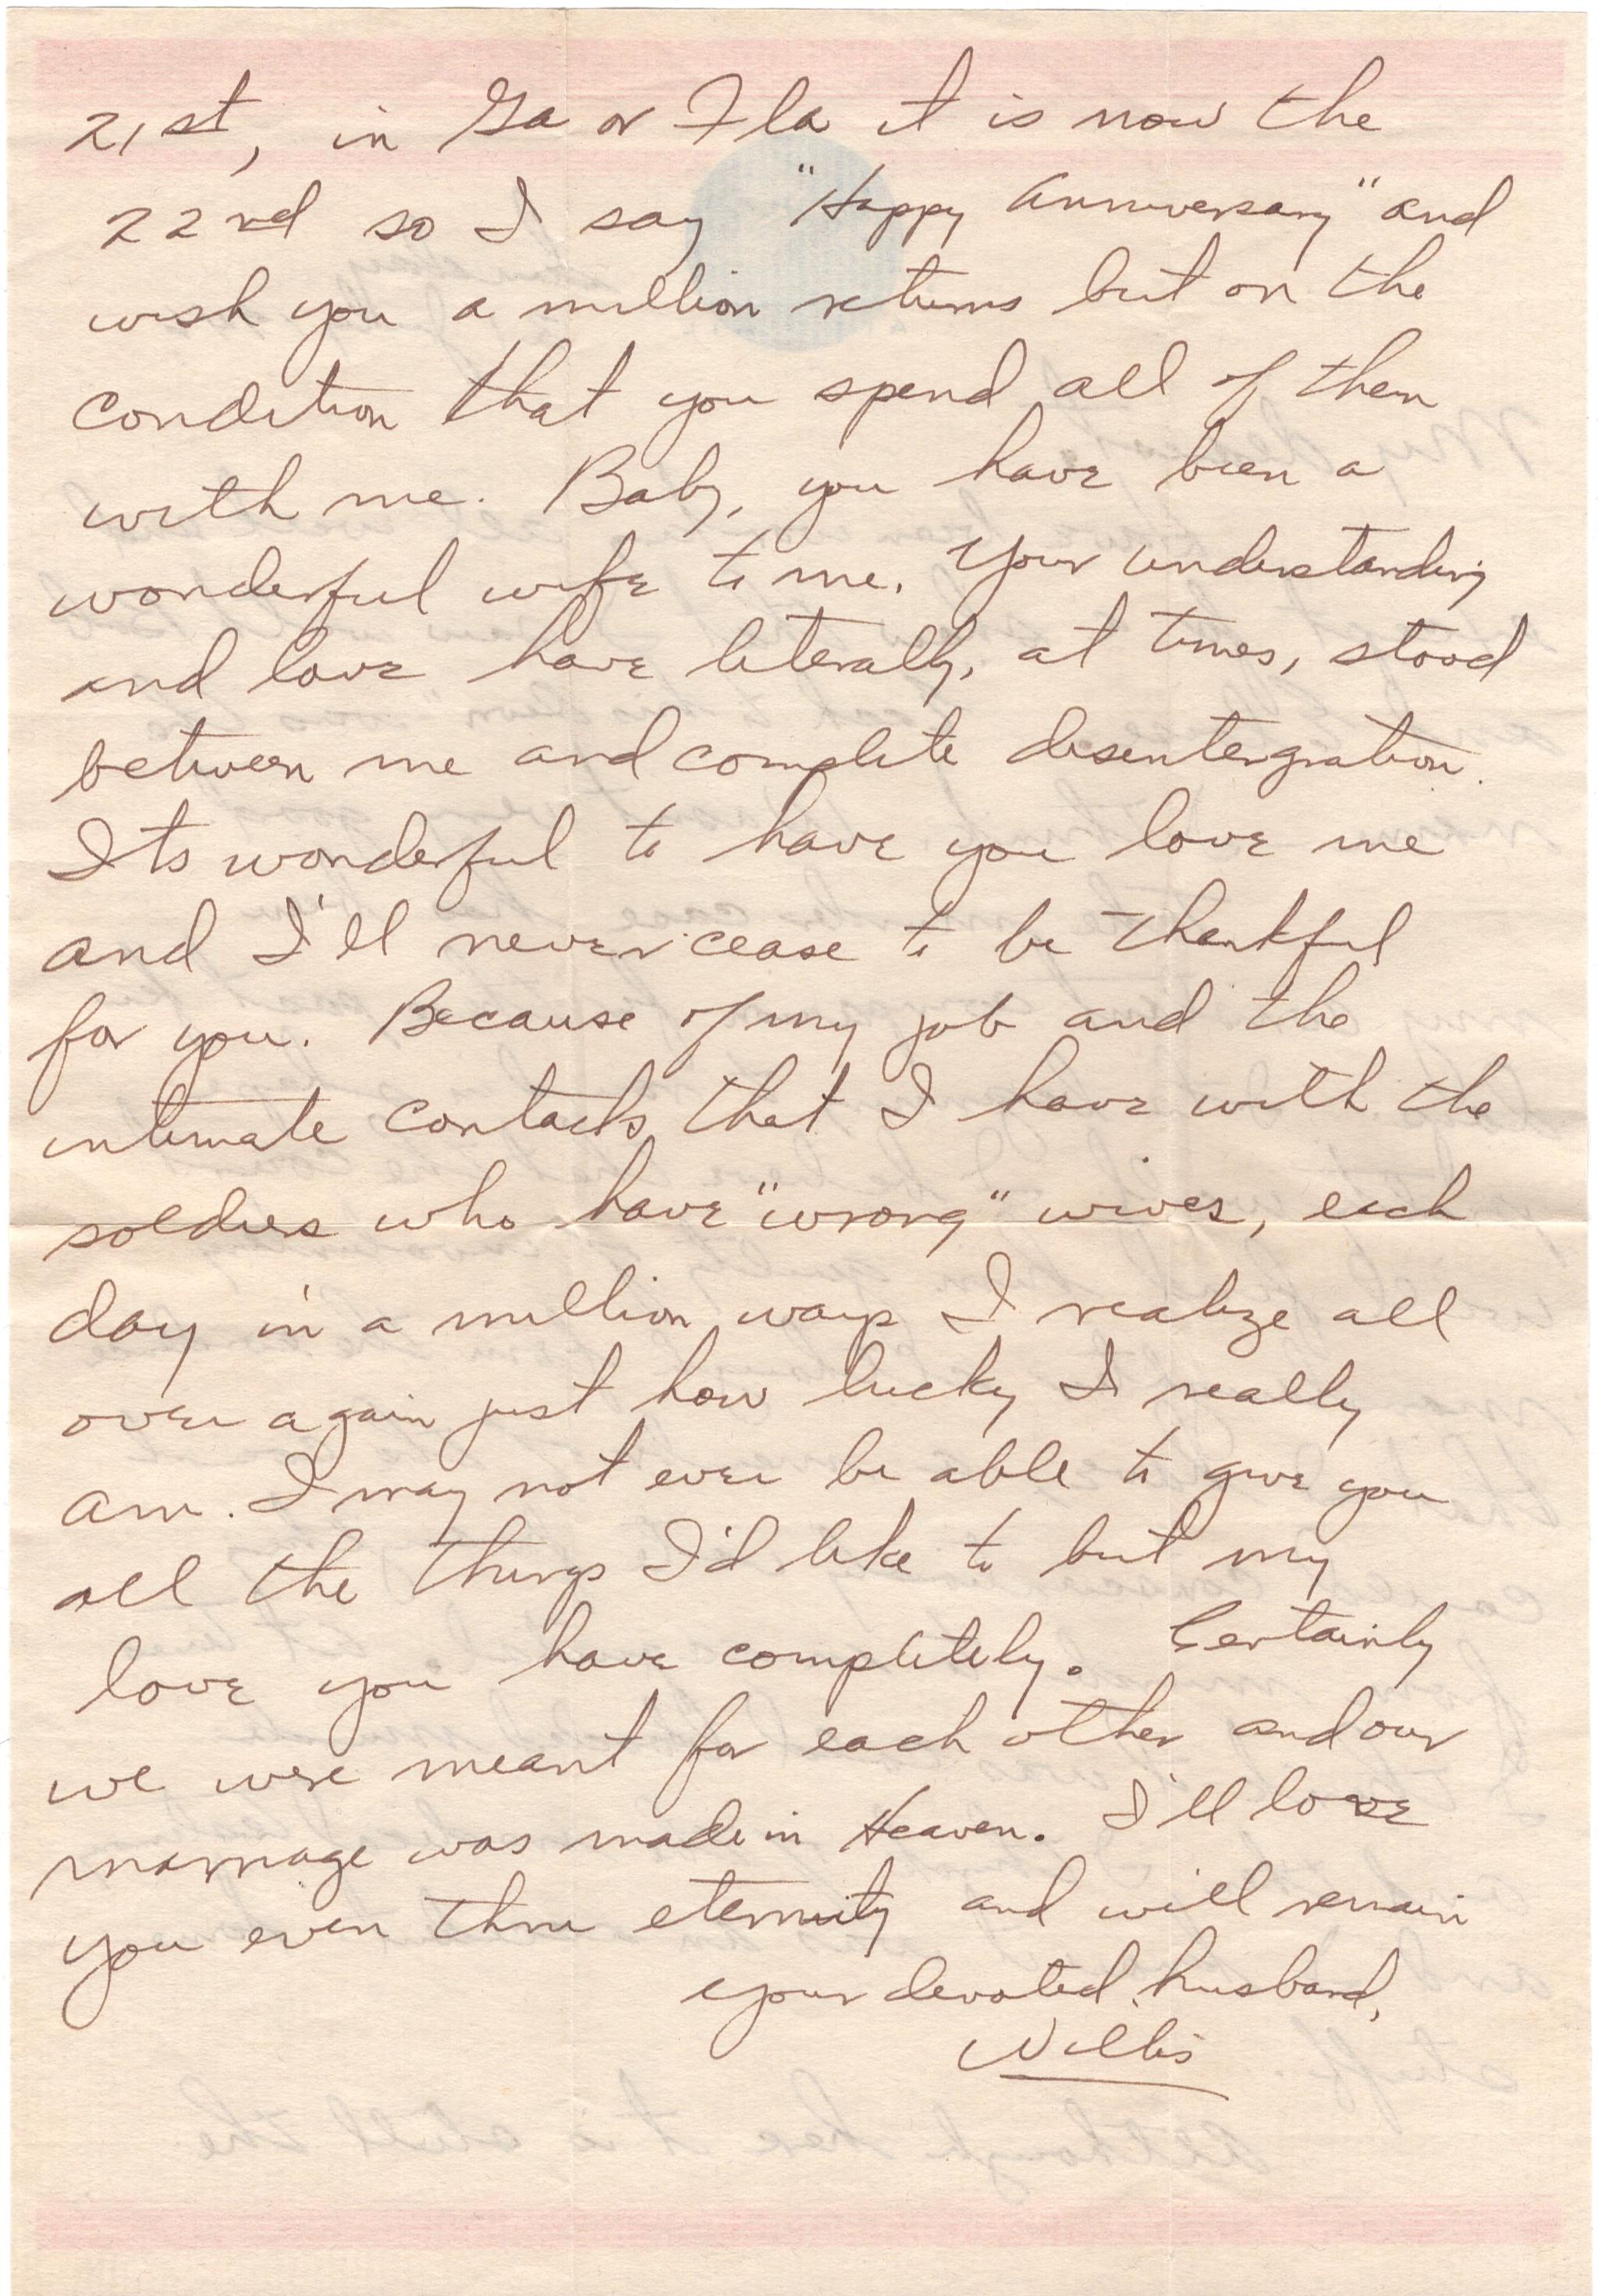 21st, in Ga or Fla it is now the
22nd so I say "Happy Anniversary" and
wish you a million returns but on the
condition that you spend all of them
with me. Baby, you have been a
wonderful wife to me. Your understanding
and love have literally, at times, stood
between me and complete disentergration.
Its wonderful to have you love me
and I'll never cease to be thankful
for you. Because of my job and the
intimate contacts that I have with the
soldiers who have "wrong" wives, each
day in a million ways I realize all
over again just how lucky I really
am. I may not ever be able to give you
all the things I'd like to but my
love you have completely. Certainly
we were meant for each other and our
marriage was made in Heaven. I'll love
you even thru eternity and will remain
your devoted husband,
Willis